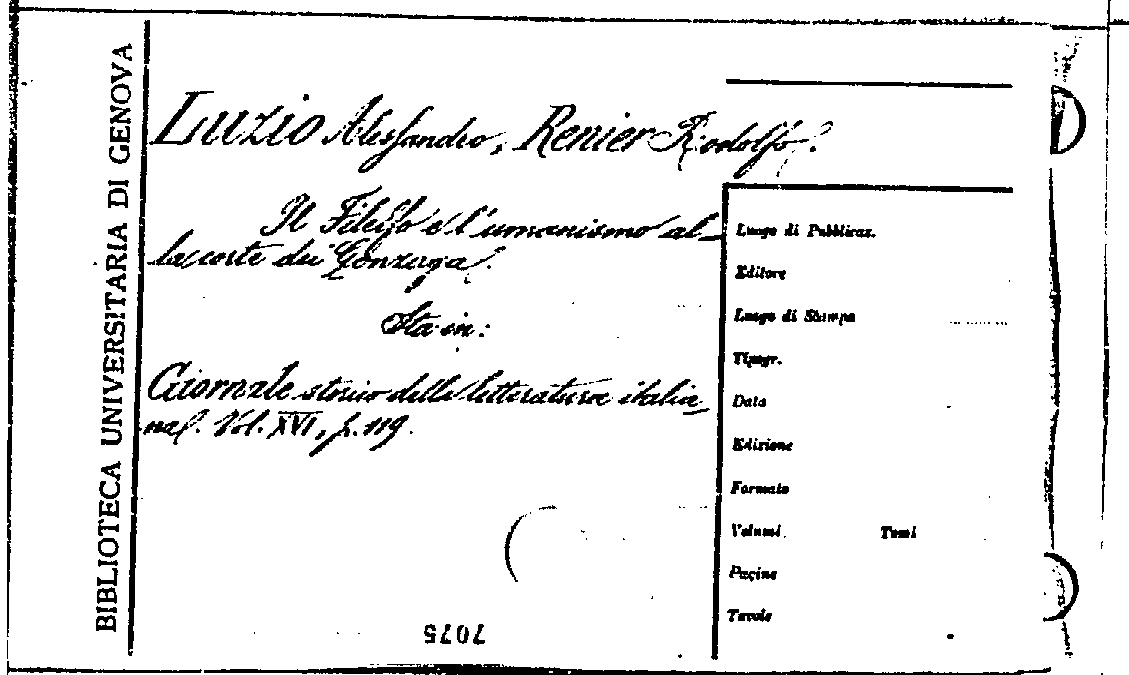 BIBLIOTECA UNIVERSITARIA DI GENOVA
Luzio Alessandro, Renier Rodolfo.
Il Filelfo e l'umanismo al-
la corte dei Gonzaga.
Sta in:
Giornale storico della letteratura italia-
na. Vol. XVI, p. 119.
Luogo di Pubblicaz.
Editore
Luogo di Stampa
Tipogr.
Data
Edizione
Formato
Volumi Tomi
Pagine
Tavole
7075